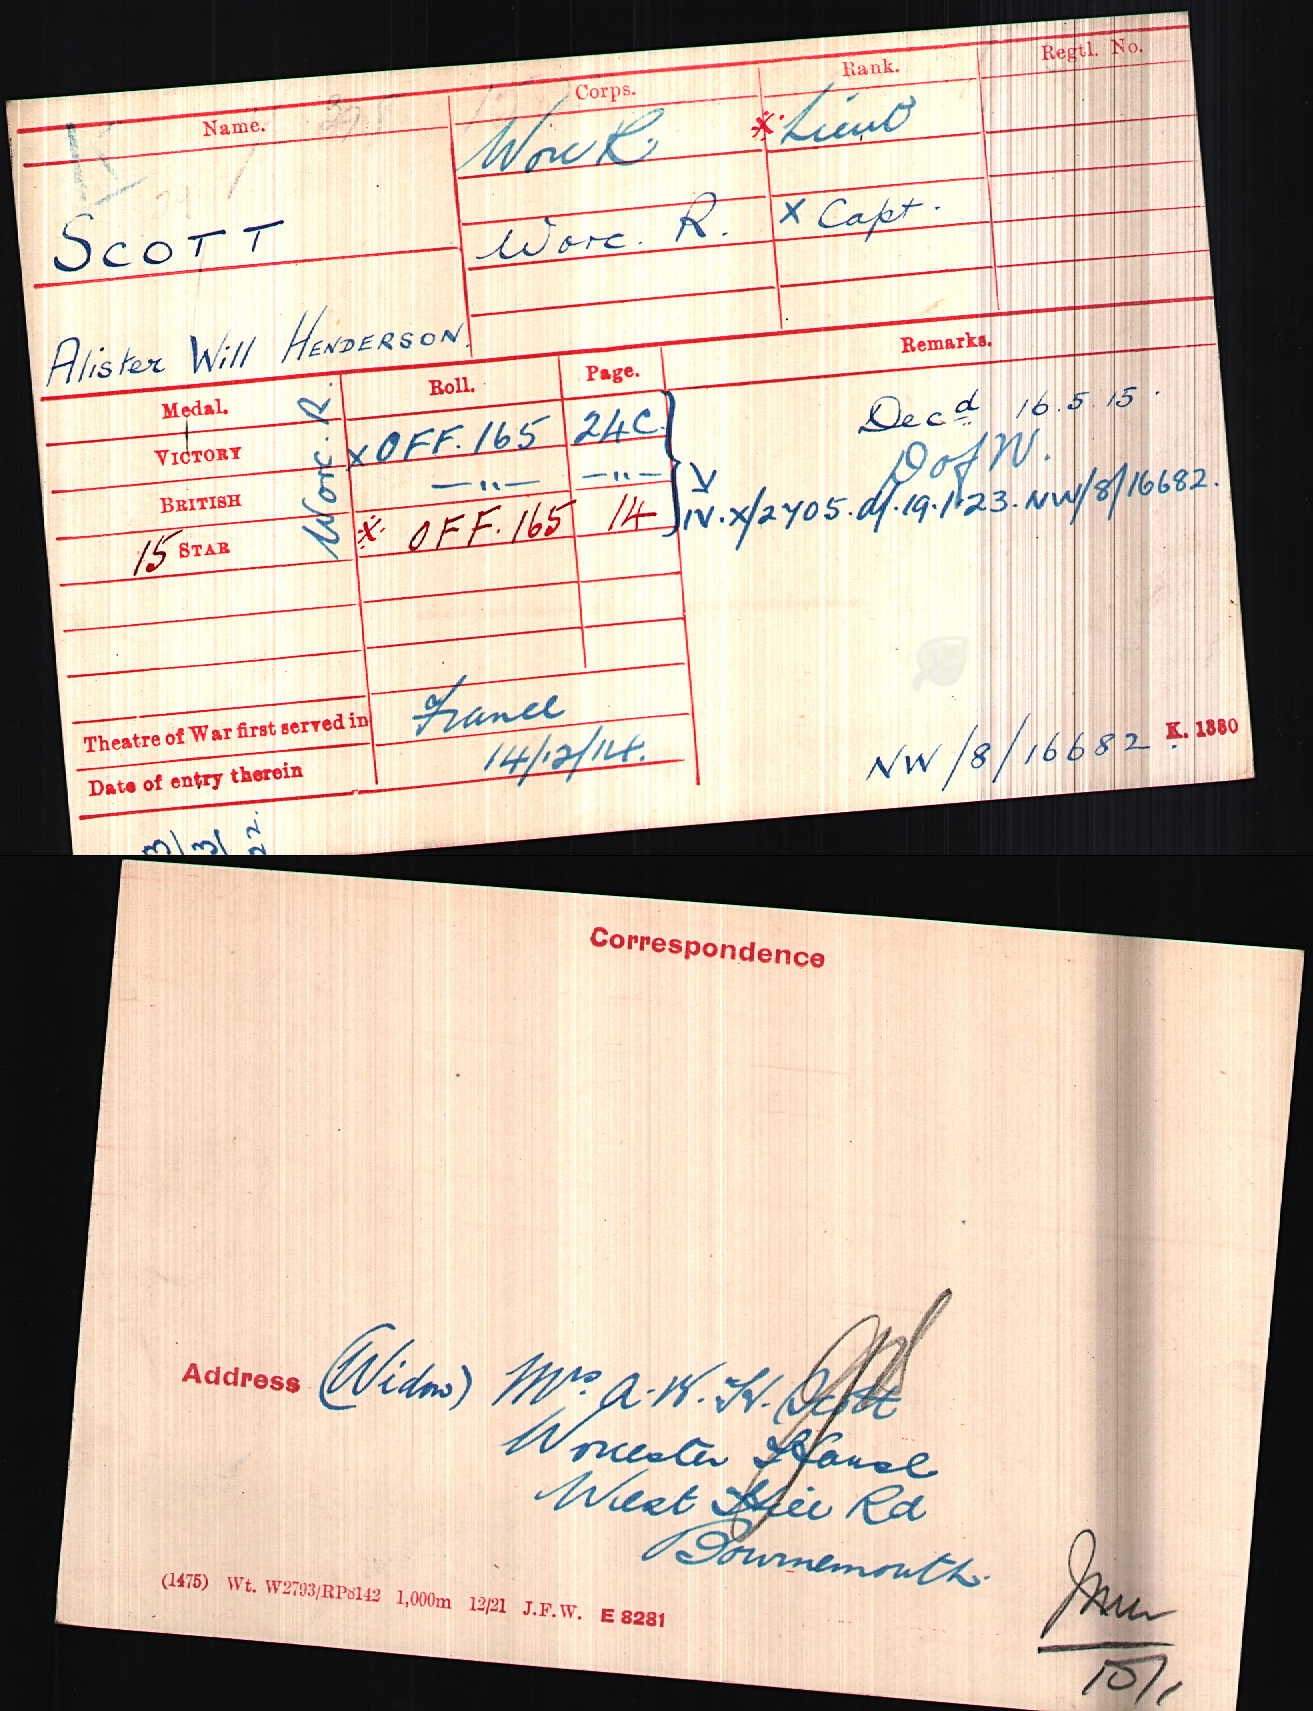 Name. Corps. Rank. Regtl. No.
K
Worc R. x Lieut
SCOTT
Worc. R. x Capt.
Alister Will HENDERSON.
Medal. Roll. Page. Remarks.
Worc. R.
VICTORY x OFF. 165 24C. Decd 16.5.15.
BRITISH —"— —"— D of W.
15 STAR x OFF. 165 14 IV. x/2705. d/. 19.1.23. NW/8/16682.
Theatre of War first served in France
Date of entry therein 14/12/14.
NW/8/16682. K. 1380
3/3/22.
Correspondence
Address (Widow) Mrs. A. W. H. Scott
Worcester House
West Hill Rd
Bournemouth.
(1475) Wt. W2793/RP8142 1,000m 12/21 J.F.W. E 8281
10/1